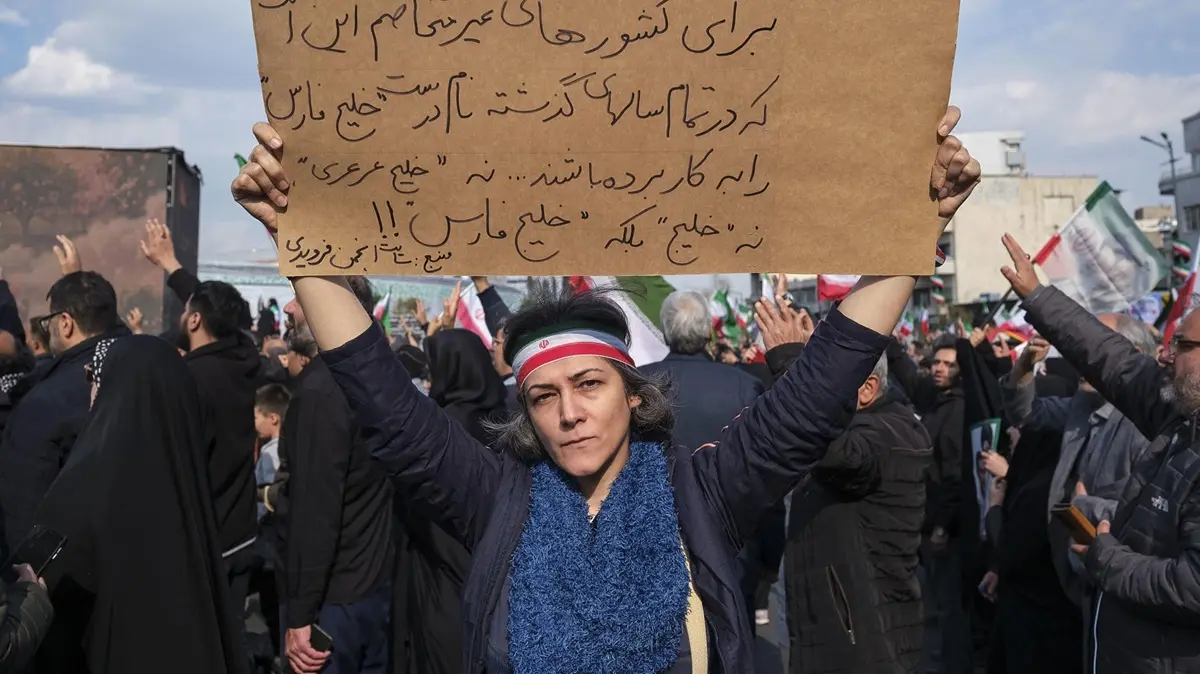 برای کشورهای غیرمتخاصم این
که در تمام سالهای گذشته نام درست "خلیج فارس"
را به کار برده باشند... نه "خلیج عرعری"
نه "خلیج" بلکه "خلیج فارس"!!
منبع: سایت انجمن فرویدی